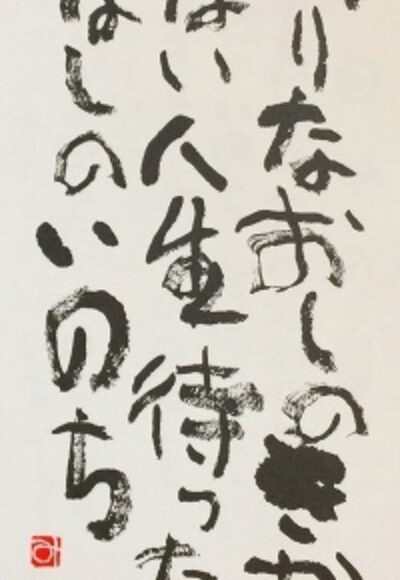 りなおしのきか
ない人生待った
なしのいのち